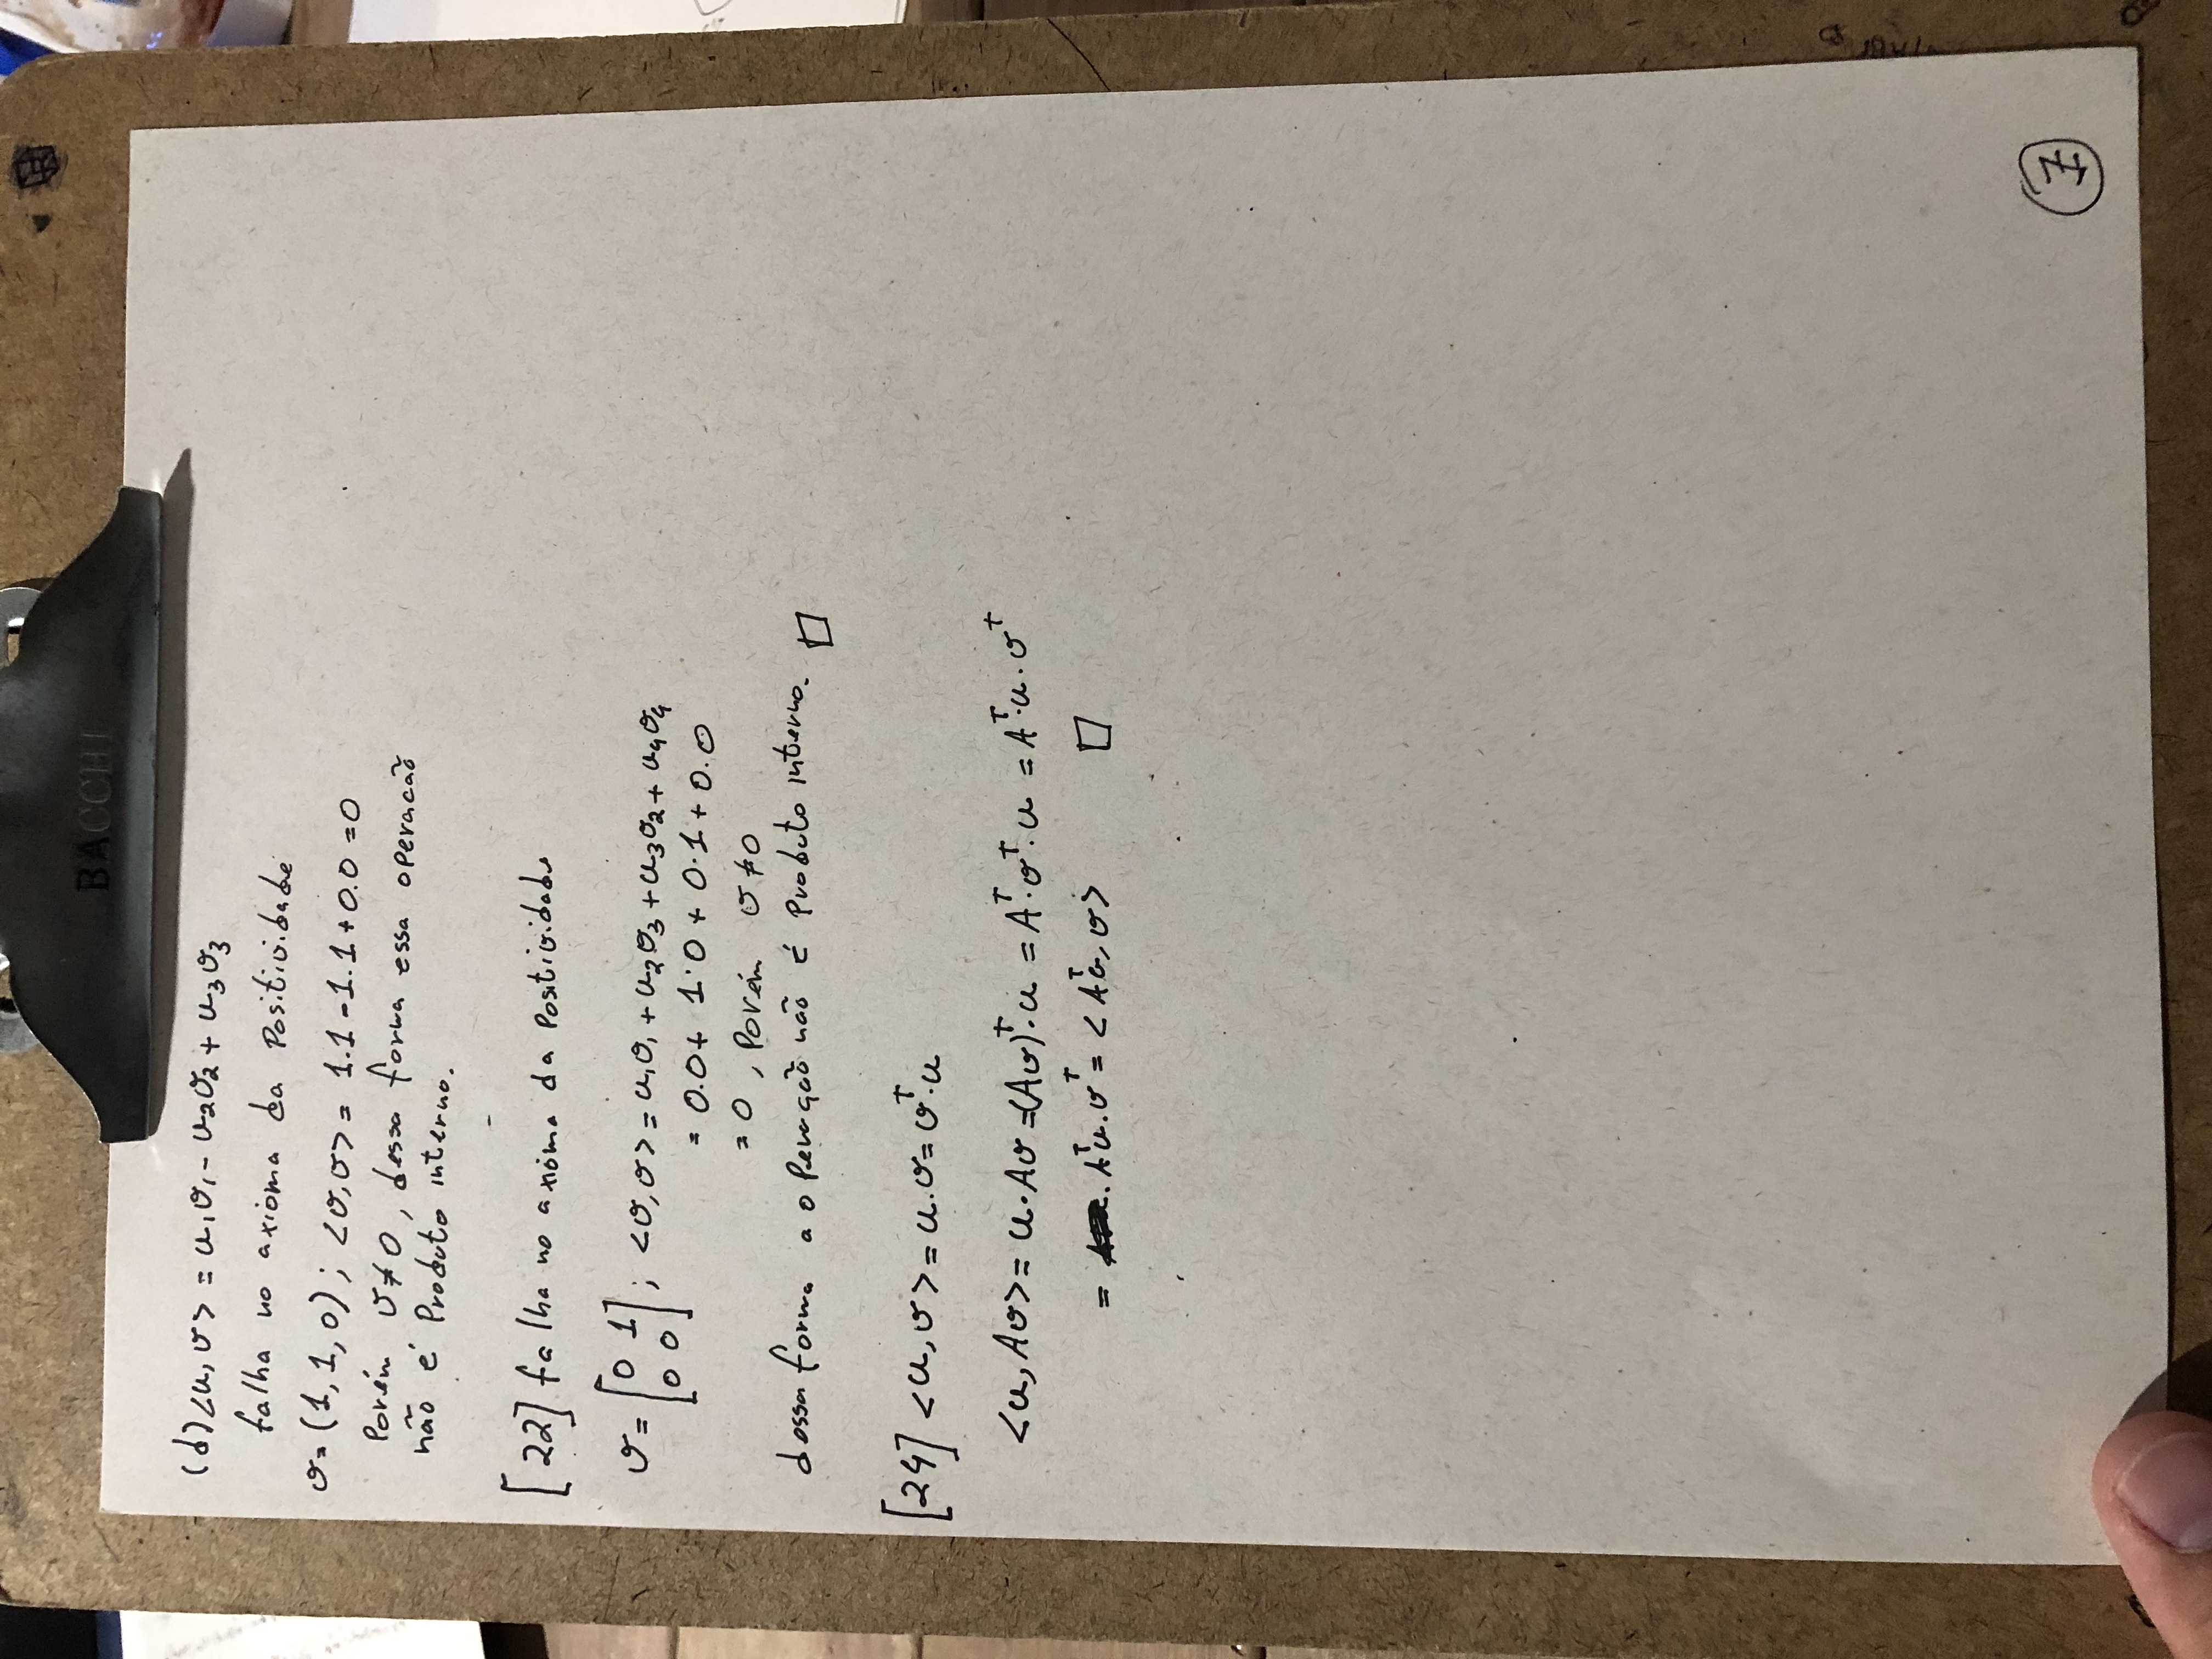 BACCHI
(d) <u, v> = u₁v₁ - u₂v₂ + u₃v₃
falha no axioma da Positividade
v = (1, 1, 0) ; <v, v> = 1.1 - 1.1 + 0.0 = 0
Porém v ≠ 0, dessa forma essa operacão
não é Produto interno.
[22] falha no axioma da Positividade
v = [0 1; 0 0] ; <v, v> = u₁v₁ + u₂v₃ + u₃v₂ + u₄v₄
= 0.0 + 1.0 + 0.1 + 0.0
= 0 , Porém v ≠ 0
dessa forma a operação não é Produto interno. □
[24] <u, v> = u.v = vᵀ.u
<u, Av> = u.Av = (Av)ᵀ.u = Aᵀ.vᵀ.u = Aᵀ.u.vᵀ
= . Aᵀu.vᵀ = <Aᵀu, v> □
7